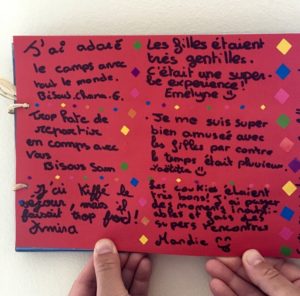 J'ai adoré
le camps avec
tout le monde.
Bisous. Chana.G.
Trop hate de
repartir
en camps avec
vous
Bisous Sam
J'ai kiffé le
séjour, mais il
faisait trop froid!
Amira
Les filles étaient
très gentilles.
C'était une super-
be expérience!
Emelyne
Je me suis super
bien amusée avec
les filles par contre
le temps était pluvieux.
Les cookies étaient
très bons! J'ai passé
des moments inoubli-
ables et fais des
supers rencontres
Mandie